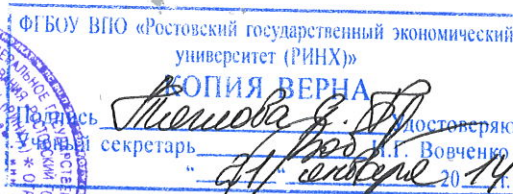 ФГБОУ ВПО «Ростовский государственный экономический
университет (РИНХ)»
КОПИЯ ВЕРНА
Подпись удостоверяю
Ученый секретарь Н.Г. Вовченко
"21" января 2014